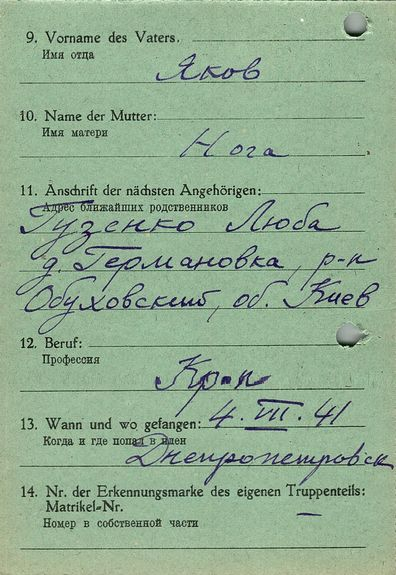 9. Vorname des Vaters.
Имя отца
Яков
10. Name der Mutter:
Имя матери
Нога
11. Anschrift der nächsten Angehörigen:
Адрес ближайших родственников
Гузенко Люба
д. Германовка, р-н
Обуховский, об. Киев
12. Beruf:
Профессия
Кр-н
13. Wann und wo gefangen: 4. III. 41
Когда и где попал в плен
Днепропетровск
14. Nr. der Erkennungsmarke des eigenen Truppenteils:
Matrikel-Nr. —
Номер в собственной части